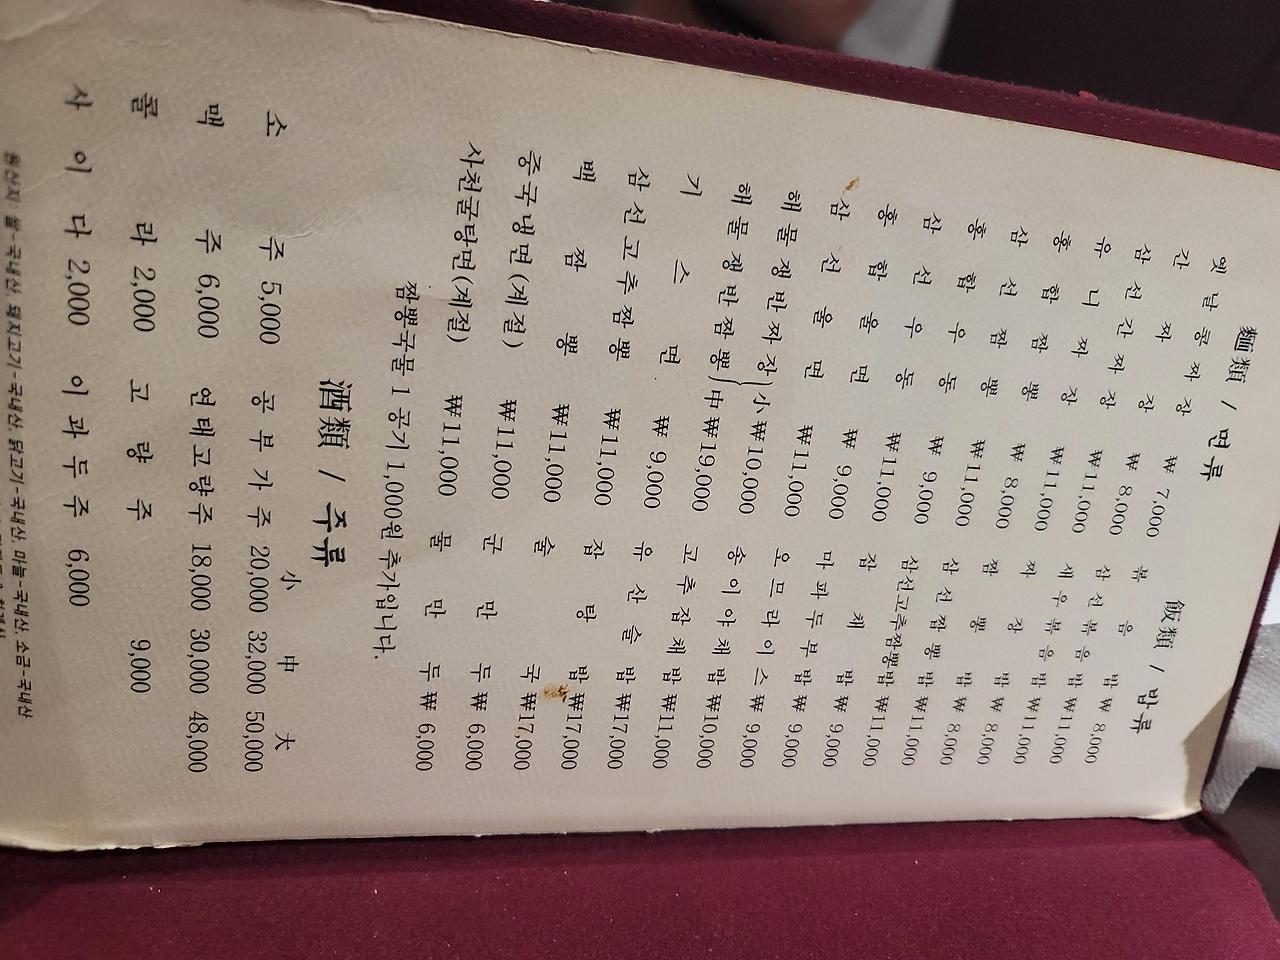 麵類 / 면류
옛날콩짜장 ₩ 7,000
간짜장 ₩ 8,000
삼선간짜장 ₩11,000
유니짜장 ₩11,000
홍합짬뽕 ₩ 8,000
삼선짬뽕 ₩11,000
홍합우동 ₩ 9,000
삼선우동 ₩11,000
홍합울면 ₩ 9,000
삼선울면 ₩11,000
해물쟁반짜장 小 ₩10,000
해물쟁반짬뽕 中 ₩19,000
기스면 ₩ 9,000
삼선고추짬뽕 ₩11,000
백짬뽕 ₩11,000
중국냉면(계절) ₩11,000
사천굴탕면(계절) ₩11,000
飯類 / 밥류
볶음밥 ₩ 8,000
삼선볶음밥 ₩11,000
새우볶음밥 ₩11,000
짜장밥 ₩ 8,000
짬뽕밥 ₩ 8,000
삼선짬뽕밥 ₩11,000
삼선고추짬뽕밥 ₩11,000
잡채밥 ₩ 9,000
마파두부밥 ₩ 9,000
오므라이스 ₩ 9,000
송이야채밥 ₩10,000
고추잡채밥 ₩11,000
유산슬밥 ₩17,000
잡탕밥 ₩17,000
술국 ₩17,000
군만두 ₩ 6,000
물만두 ₩ 6,000
짬뽕국물 1 공기 1,000원 추가입니다.
酒類 / 주류
小 中 大
소주 5,000 공부가주 20,000 32,000 50,000
맥주 6,000 연태고량주 18,000 30,000 48,000
콜라 2,000 고량주 9,000
사이다 2,000 이과두주 6,000
원산지: 쌀-국내산, 돼지고기-국내산, 닭고기-국내산, 마늘-국내산, 소금-국내산